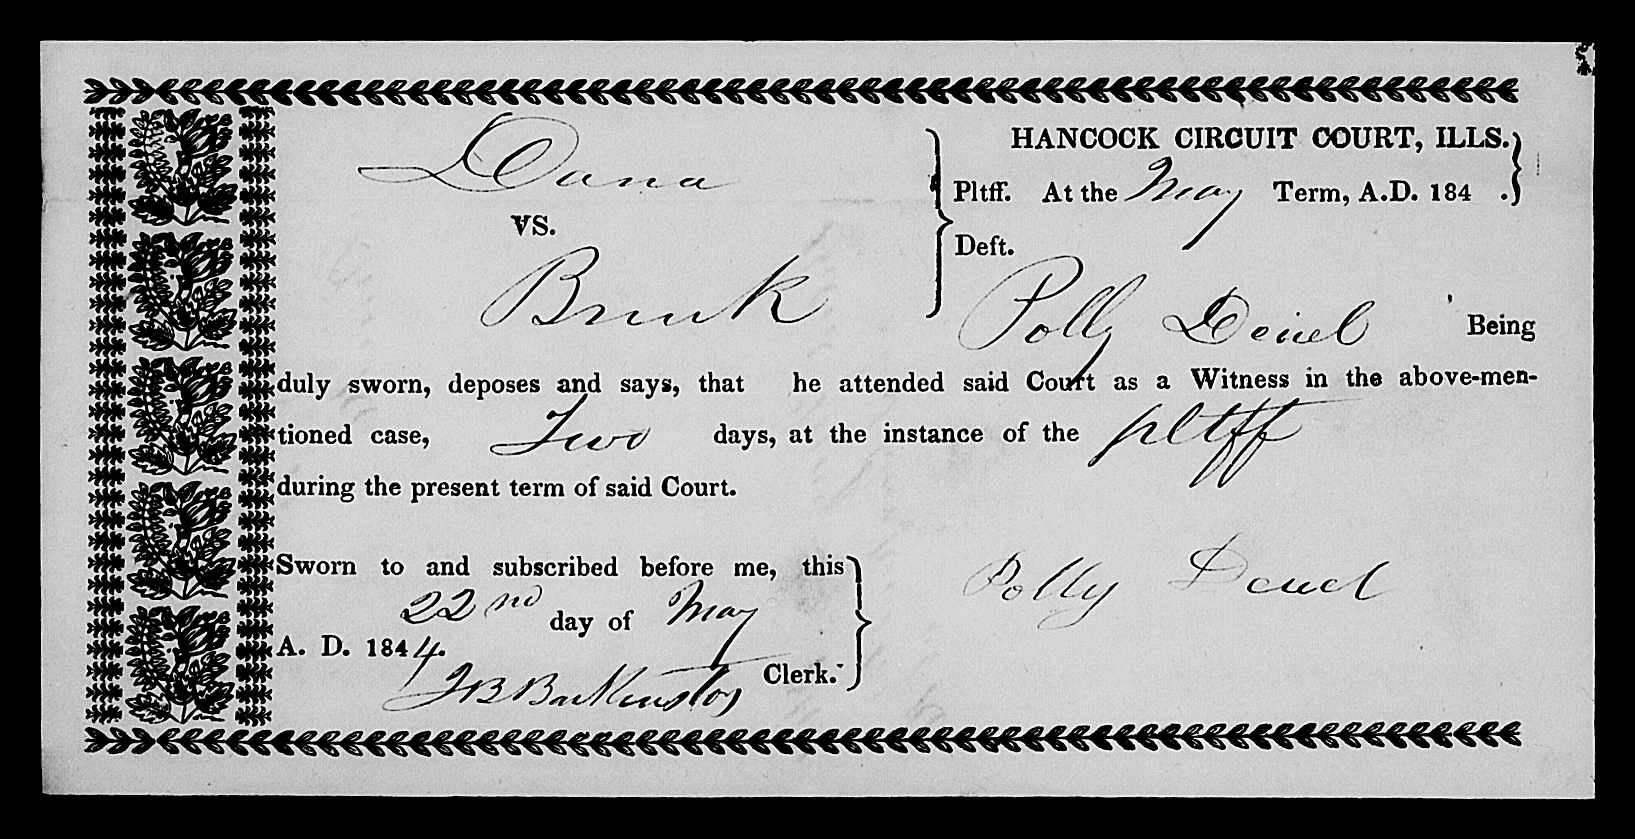 HANCOCK CIRCUIT COURT, ILLS.
Dana
Pltff. At the May Term, A.D. 184 .
VS.
Deft.
Brink
Polly Deuel Being
duly sworn, deposes and says, that he attended said Court as a Witness in the above-men-
tioned case, Two days, at the instance of the pltff
during the present term of said Court.
Sworn to and subscribed before me, this
22nd day of May
A. D. 1844.
Polly Deuel
J B Backenstos Clerk.